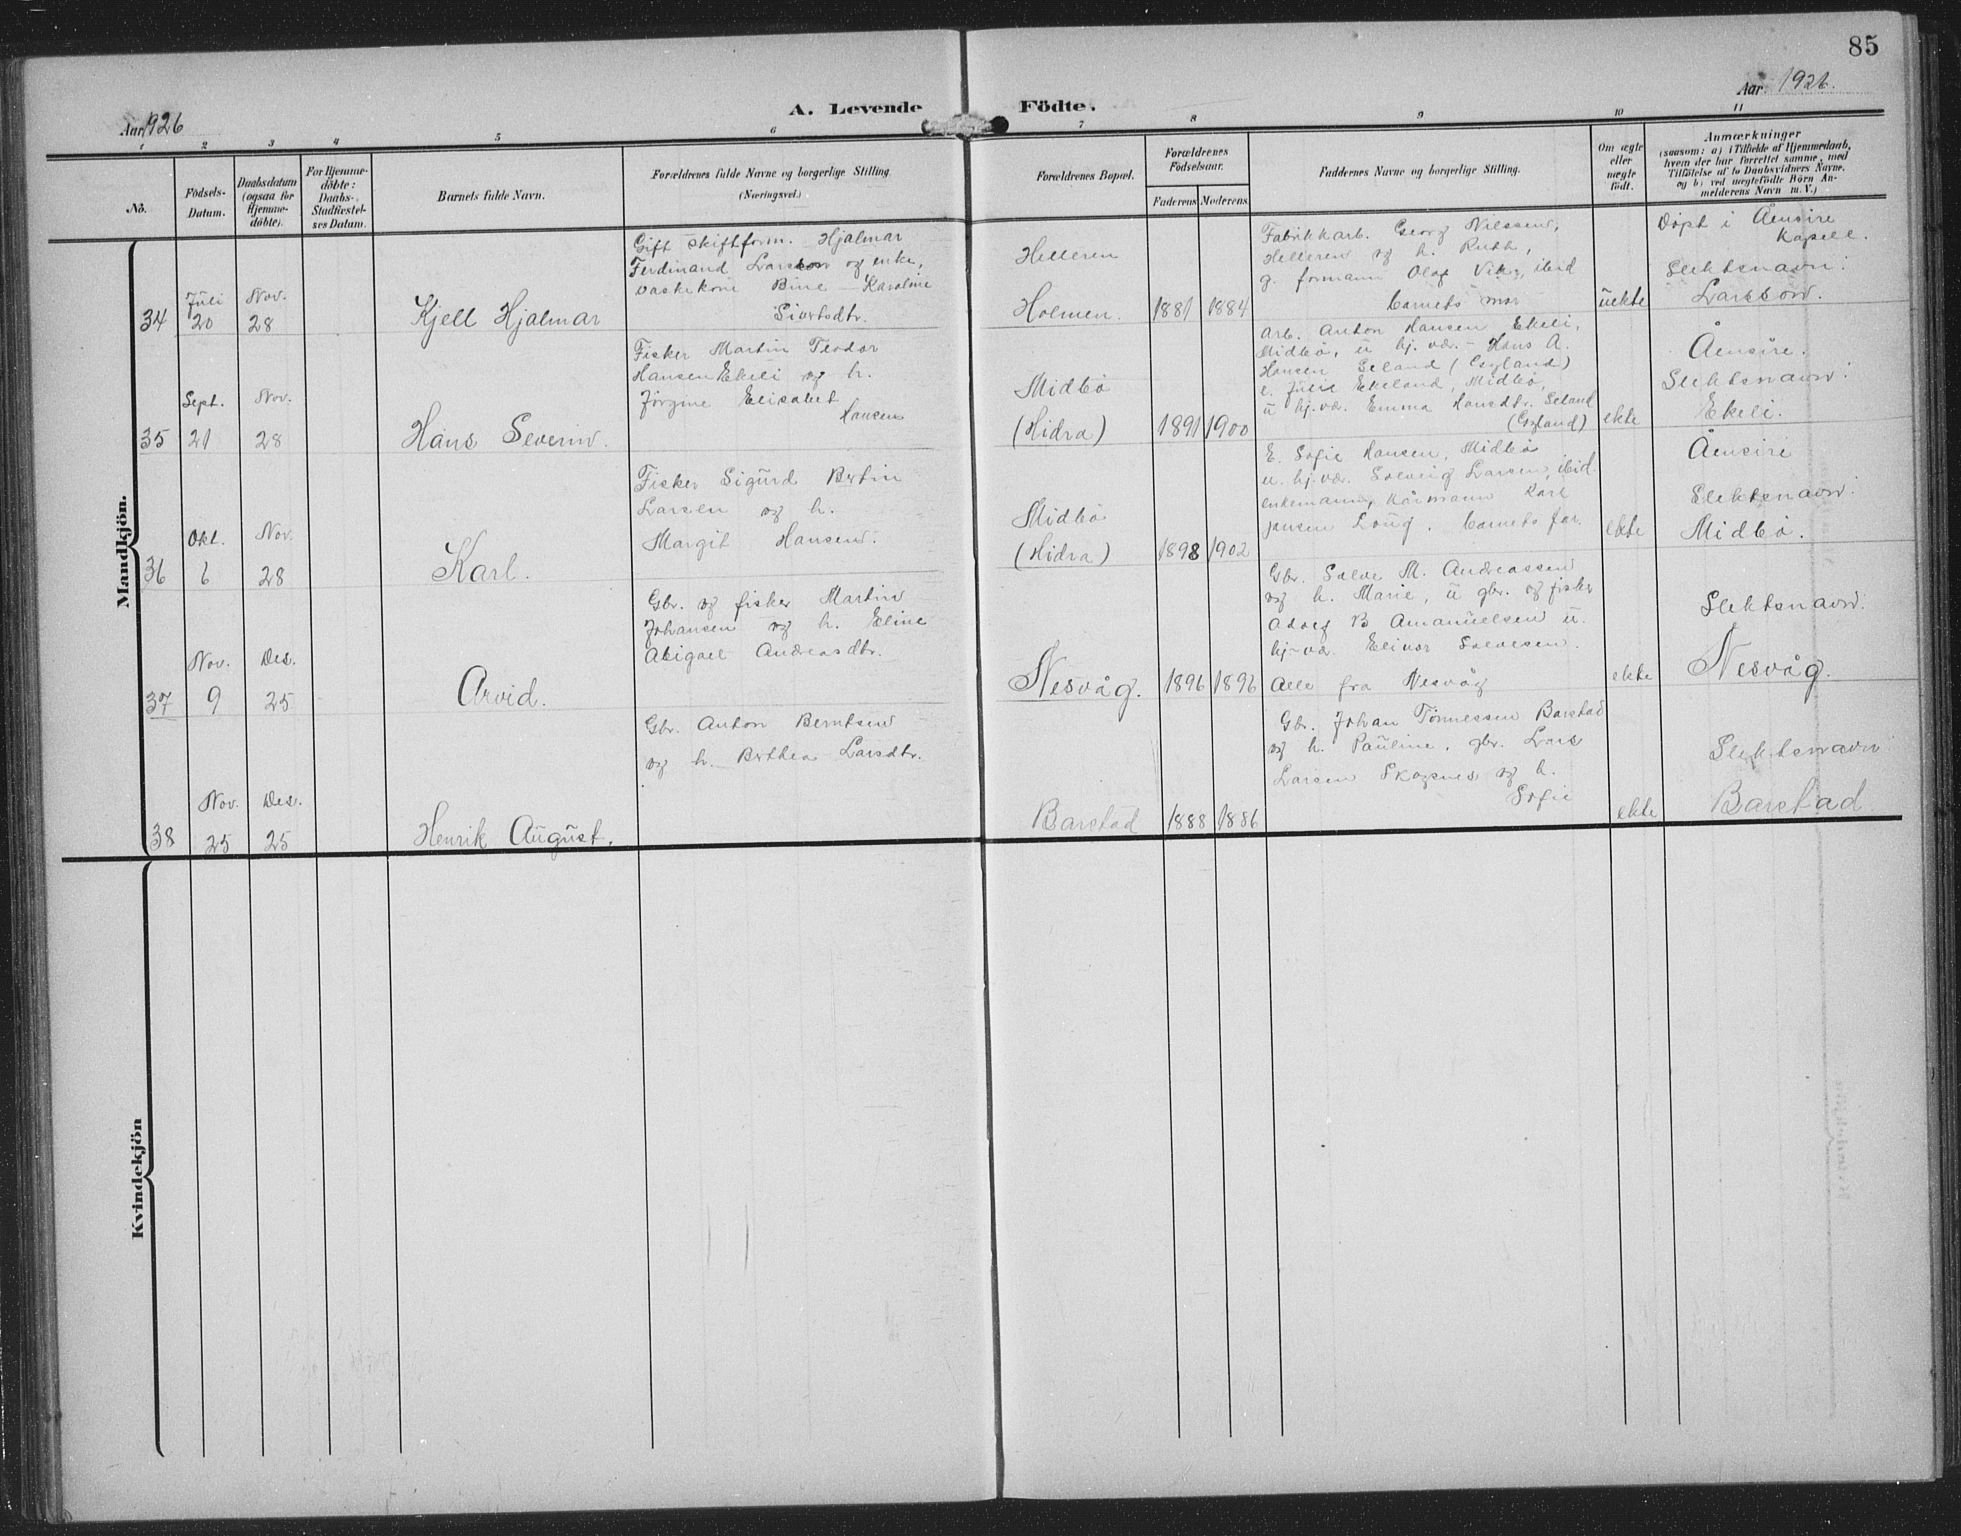 85
Aar 1926
A. Levende Födte.
Aar 1926.
1 2 3 4 5 6 7 8 9 10 11
No.
Födsels-
Datum.
Daabsdatum
(ogsaa for
Hjemme-
döbte).
For Hjemme-
döbte:
Daabs-
Stadfæstel-
ses Datum.
Barnets fulde Navn.
Forældrenes fulde Navne og borgerlige Stilling
(Næringsvei.)
Forældrenes Bopæl.
Forældrenes
Födselsaar.
Faderens Moderens
Faddernes Navne og borgerlige Stilling.
Om ægte
eller
uægte
födt.
Anmærkninger
(saasom: a) i Tilfælde af Hjemmedaab,
hvem der har forrettet samme, med
Tilföielse af to Daabsvidners Navne,
og b) ved uægtefödte Börn An-
melderens Navn m. V.)
Mandkjön.
34
Juli
20
Nov.
28
Kjell Hjalmar
Gift skiftform. Hjalmar
Ferdinand Larsson og enke,
vaskekone Bine Karoline
Sivertsdtr.
Helleren
Holmen.
1881 1884
Fabrikkarb. Georg Nilssen,
Helleren og h. Ruth,
g. formann Olaf Vik, ibid
barnets mor
uekte
Döpt i Åensire
Kapell.
Slektsnavn:
Larsson.
35
Sept.
21
Nov.
28
Hans Severin.
Fisker Martin Teodor
Hansen Ekeli og h.
Jörgine Elisabet
Hansen
Midbö
(Hidra)
1891 1900
arb. Anton Hansen Ekeli,
Midbö, u hj. vær. - Hans A.
Hansen Seland (Gyland)
e. Julie Ekeland, Midbö,
u hj. vær. Emma Hansdtr. Seland
(Gyland)
ekte
Åensire.
Slektsnavn:
Ekeli.
36
Okt.
6
Nov.
28
Karl.
Fisker Sigurd Bertin
Larsen og h.
Margit Hansen.
Midbö
(Hidra)
1898 1902
E. Sofie Hansen, Midbö
u. hj. vær. Solveig Larsen, ibid.
enkemann, Karl
Jansen Loug, barnets far.
ekte
Åensire
Slektsnavn:
Midbö.
37
Nov.
9
Des.
25
Arvid.
Gbr. og fisker Martin
Johansen og h. Eline
Abigael Andreasdtr.
Nesvåg.
1896 1896
Gbr. Salve M. Andreassen
og h. Marie, u gbr. og fisker
Adolf B Amanuelsen u.
hj-vær. Elinor Salvesen.
Alle fra Nesvåg
ekte
Slektsnavn:
Nesvåg.
38
Nov.
25
Des.
25
Henrik August.
Gbr. Anton Berntsen
og h. Berthea Larsdtr.
Barstad
1888 1886
Gbr. Johan Tönnessen Barstad
og h. Pauline, gbr. Lars
Larsen Skogsnes og h.
Sofie
ekte
Slektsnavn:
Barstad
Kvindekjön